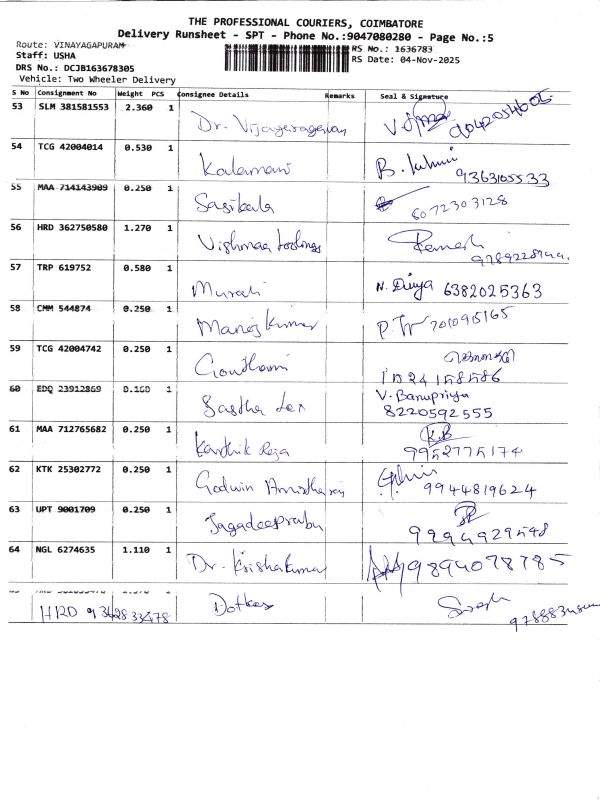 THE PROFESSIONAL COURIERS, COIMBATORE
Delivery Runsheet - SPT - Phone No.:9047080280 - Page No.:5
Route: VINAYAGAPURAM
Staff: USHA
DRS No.: DCJB163678305
Vehicle: Two Wheeler Delivery
RS No.: 1636783
RS Date: 04-Nov-2025
S No Consignment No Weight PCS Consignee Details Remarks Seal & Signature
53 SLM 381581553 2.360 1 Dr. Vijayaragavan
54 TCG 42004014 0.530 1 Kalamani 9363105533
55 MAA 714143909 0.250 1 Sasikala 6072303128
56 HRD 362750580 1.270 1 Ramesh
57 TRP 619752 0.580 1 Murali N. Divya 6382025363
58 CMM 544874 0.250 1 Manoj Kumar 7010915165
59 TCG 42004742 0.250 1 Gouthami
60 EDQ 23912869 0.160 1 Sastha Tex V. Banupriya 8220592555
61 MAA 712765682 0.250 1 Karthik Raja K.B 9952775174
62 KTK 25302772 0.250 1 Godwin 9944819624
63 UPT 9001709 0.250 1 Jagadeesprabu 9994929548
64 NGL 6274635 1.110 1 Dr. Krishakumar 9894078785
HRD 9362833478